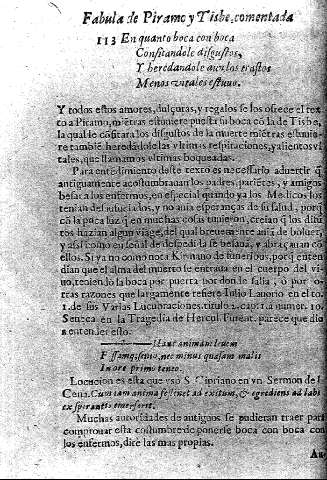 Fabula de Piramo y Tisbe, comentada
113 En quanto boca con boca
Confitandole disgustos,
Y heredandole aun los
Menos vitales estuuo.
Y todos estos amores, dulçuras, y regalos se los ofrece el tex
to a Piramo, miẽtras estuuiere puesta su boca cõ la de Tisbe,
la qual le cõfitara los disgustos de la muerte miẽtras estuuie
re tambiẽ heredãdole las vltimas respiraciones, y alientos vi
tales, que llamamos vltimas boqueadas.
Para entẽdimiento deste texto es necessario aduertir q̃
antiguamente acostumbrauan los padres, pariẽtes, y amigos
besar a los enfermos, en especial quando ya los Medicos los
tenian desauciados, y no auia esperanças de su salud, porq̃
cõ la paca luz q̃ en muchas cosas tuuierõ, creian q̃ los difũ
tos hazian algun viage, del qual breuemente auiã de boluer,
y assi como en señal de despedida se besauã, y abraçauan cõ
ellos. Si ya no como nota Kirmano de funeribus, porq̃ entẽ
dian que el alma del muerto se entraua en el cuerpo del vi-
uo, teniẽdo la boca por puerta por donde salia, ò por o-
tras razones que largamente refiere Iulio en el to.
1. de sus Varias Lucubraciones, titulo 2. cautra 4. numer. 10.
Seneca en la Tragedia de Hercul. Fureat. parece que dio
a entender esto.
Hanc animam leuem
Fessamq; senio, nec minus quasam malis
In ore primo teneo.
Locucion es esta que vsò S. Cipriano en vn Sermon de
Cena. Cum iam anima festinet ad exitum, & egrediens ad labi
expirantis emerserit.
Muchas autoridades de antiguos se pudieran traer para
comprouar esta costumbre de ponerse boca con boca con
los enfermos, dire las mas propias.